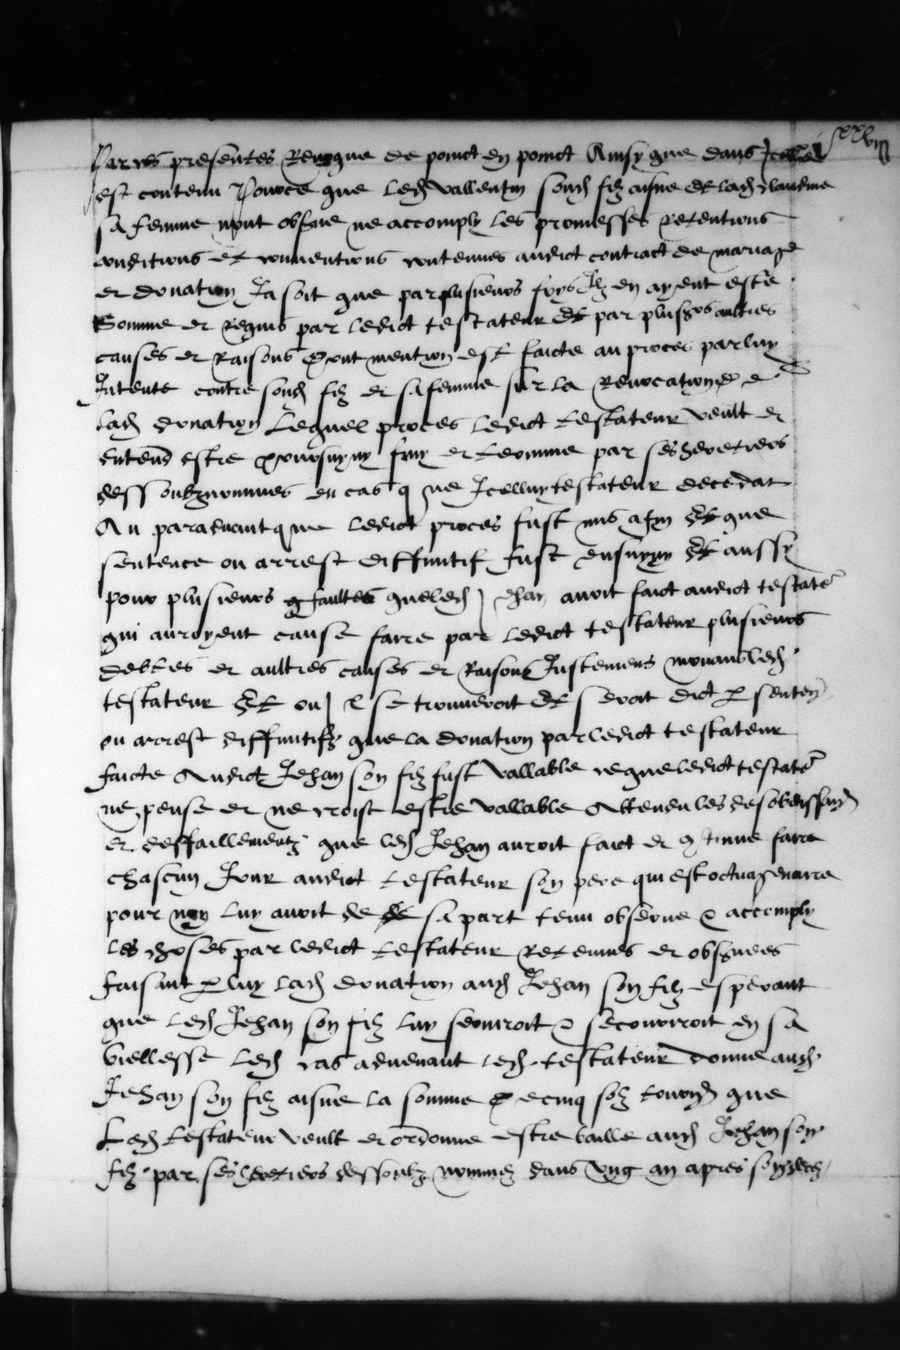 Par ces presentes Revoque de poinct en poinct Ainsy que dans Icelle
est contenu Pource que led Vallentin sond filz aisne et lad Claudine
sa femme n'ont observe ne accomply les promesses retentions
conditions et conventions contenues audict contract de mariage
et donation Ja soit que par plusieurs foys Ilz en ayent este
Somme et Requis par ledict testateur Et par plusrs aultres
causes et Raisons dont mention est faicte au proces par luy
Intente contre sond filz et sa femme sur la Revocation de
lad donation Lequel proces ledict testateur veult et
entend estre poursuyvy finy et termine par ses heretiers
dessoubz nommes en cas que Icelluy testateur decedat
Au paravant que ledict proces fust mis a fin Et que
sentence ou arrest diffinitif fust ensuyvy Et aussy
pour plusieurs faultes que led Jehan avoit faict audict testater
qui auroyent cause faire par ledict testateur plusieurs
debtes et aultres causes et Raisons Justement mouans led
testateur Et ou Il se trouveroit Et seroit dict par senten
ou arrest diffinitifz que la donation par ledict testateur
faicte Audict Jehan son filz fust vallable ce que ledict testater
ne pense et ne croist estre vallable Attendu les desobeissan
et deffaillementz que led Jehan auroit faict et continue faire
chascun Jour audict testateur son pere qui est octuagenaire
pour n'en luy avoir de sa part tenu observe & accomply
les choses par ledict testateur Retenues et observees
faisant par luy lad donation aud Jehan son filz esperant
que led Jehan son filz luy serviroit & secourroit en sa
viellesse led cas advenant led testateur donne aud
Jehan son filz aisne la somme de cinq solz tourn que
Led testateur veult et ordonne estre baille aud Jehan son
filz par ses heretiers dessoubz nommez dans ung an apres son dece